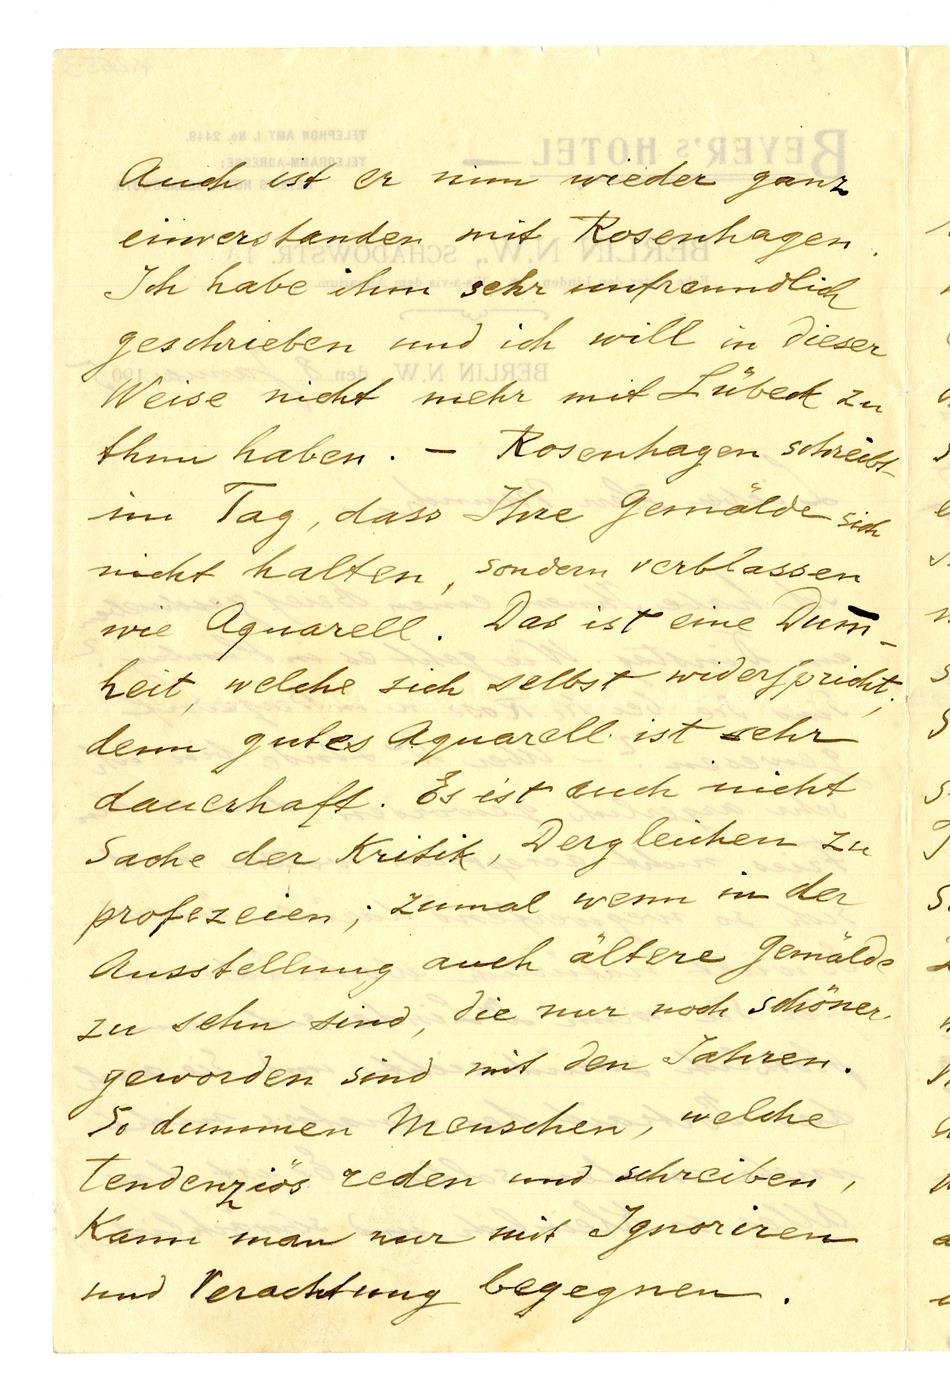 Auch ist er nun wieder ganz
einverstanden mit Rosenhagen.
Ich habe ihm sehr unfreundlich
geschrieben und ich will in dieser
Weise nicht mehr mit Lübeck zu
thun haben. — Rosenhagen schreibt
im Tag, dass Ihre Gemälde sich
nicht halten, sondern verblassen
wie Aquarell. Das ist eine Dum-
heit, welche sich selbst widerspricht,
denn gutes Aquarell ist sehr
dauerhaft. Es ist auch nicht
Sache der Kritik, Dergleichen zu
profezeien; zumal wenn in der
Ausstellung auch ältere Gemälde
zu sehn sind, die nur noch schöner
geworden sind mit den Jahren.
So dummen Menschen, welche
tendenziös reden und schreiben,
kann man nur mit Ignoriren
und Verachtung begegnen.
BEYER'S HOTEL
TELEPHON AMT I. No. 2449.
TELEGRAMM-ADRESSE:
BERLIN N.W., SCHADOWSTR. 1A
BERLIN N.W., den
190